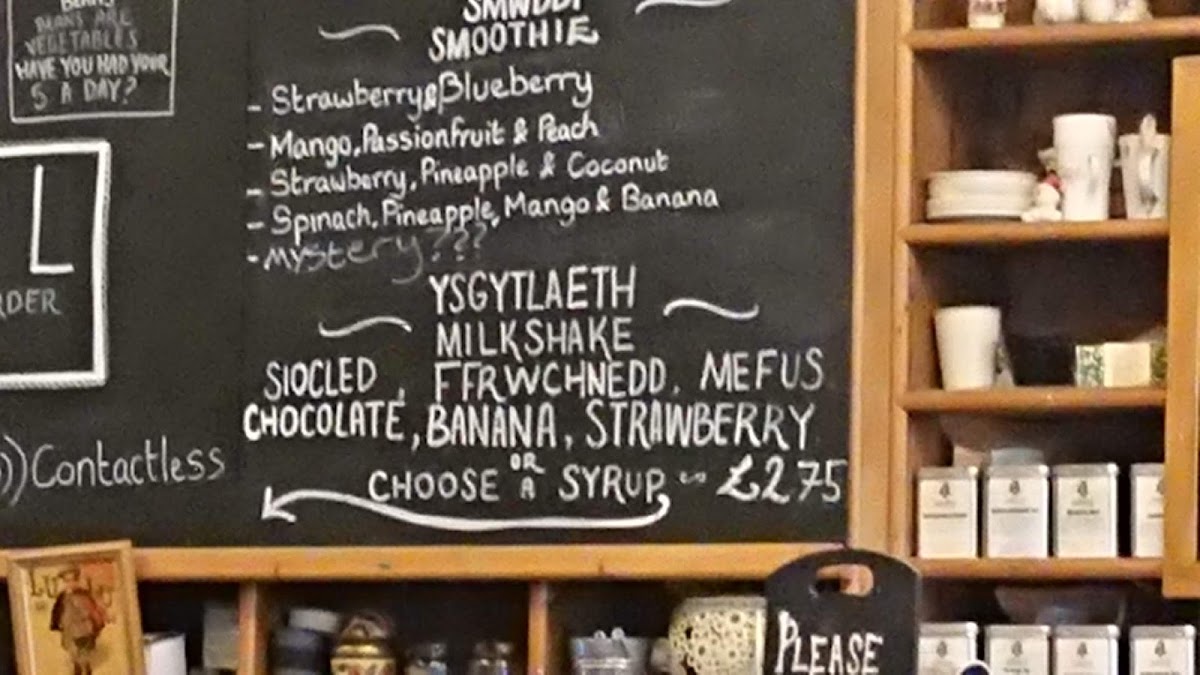 BEANS ARE
VEGETABLES
HAVE YOU HAD YOUR
5 A DAY?
L
RDER
)) Contactless
SMWDDI
SMOOTHIE
- Strawberry & Blueberry
- Mango, Passionfruit & Peach
- Strawberry, Pineapple & Coconut
- Spinach, Pineapple, Mango & Banana
- Mystery???
YSGYTLAETH
MILKSHAKE
SIOCLED, FFRWCHNEDD, MEFUS
CHOCOLATE, BANANA, STRAWBERRY
OR
CHOOSE A SYRUP ~ £2.75
PLEASE